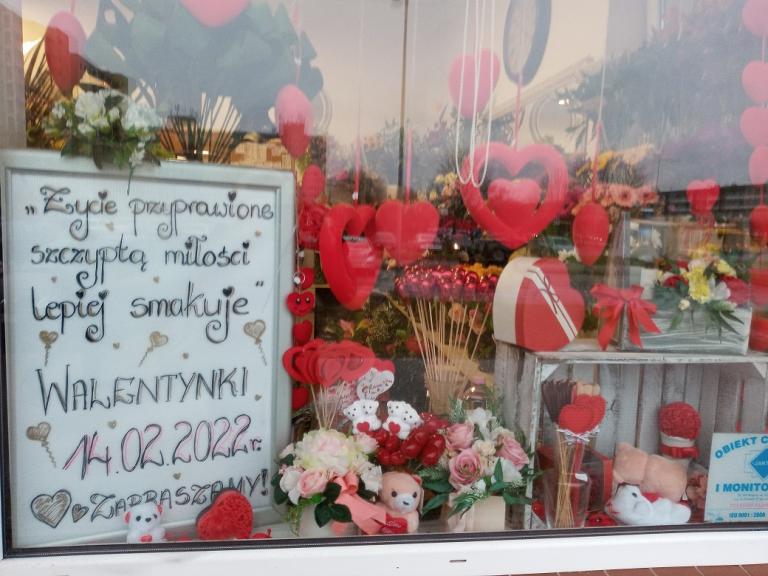 „Życie przyprawione
szczyptą miłości
lepiej smakuje"
WALENTYNKI
14.02.2022r.
ZAPRASZAMY!
OBIEKT C
I MONITO
ISO 9001 : 2008